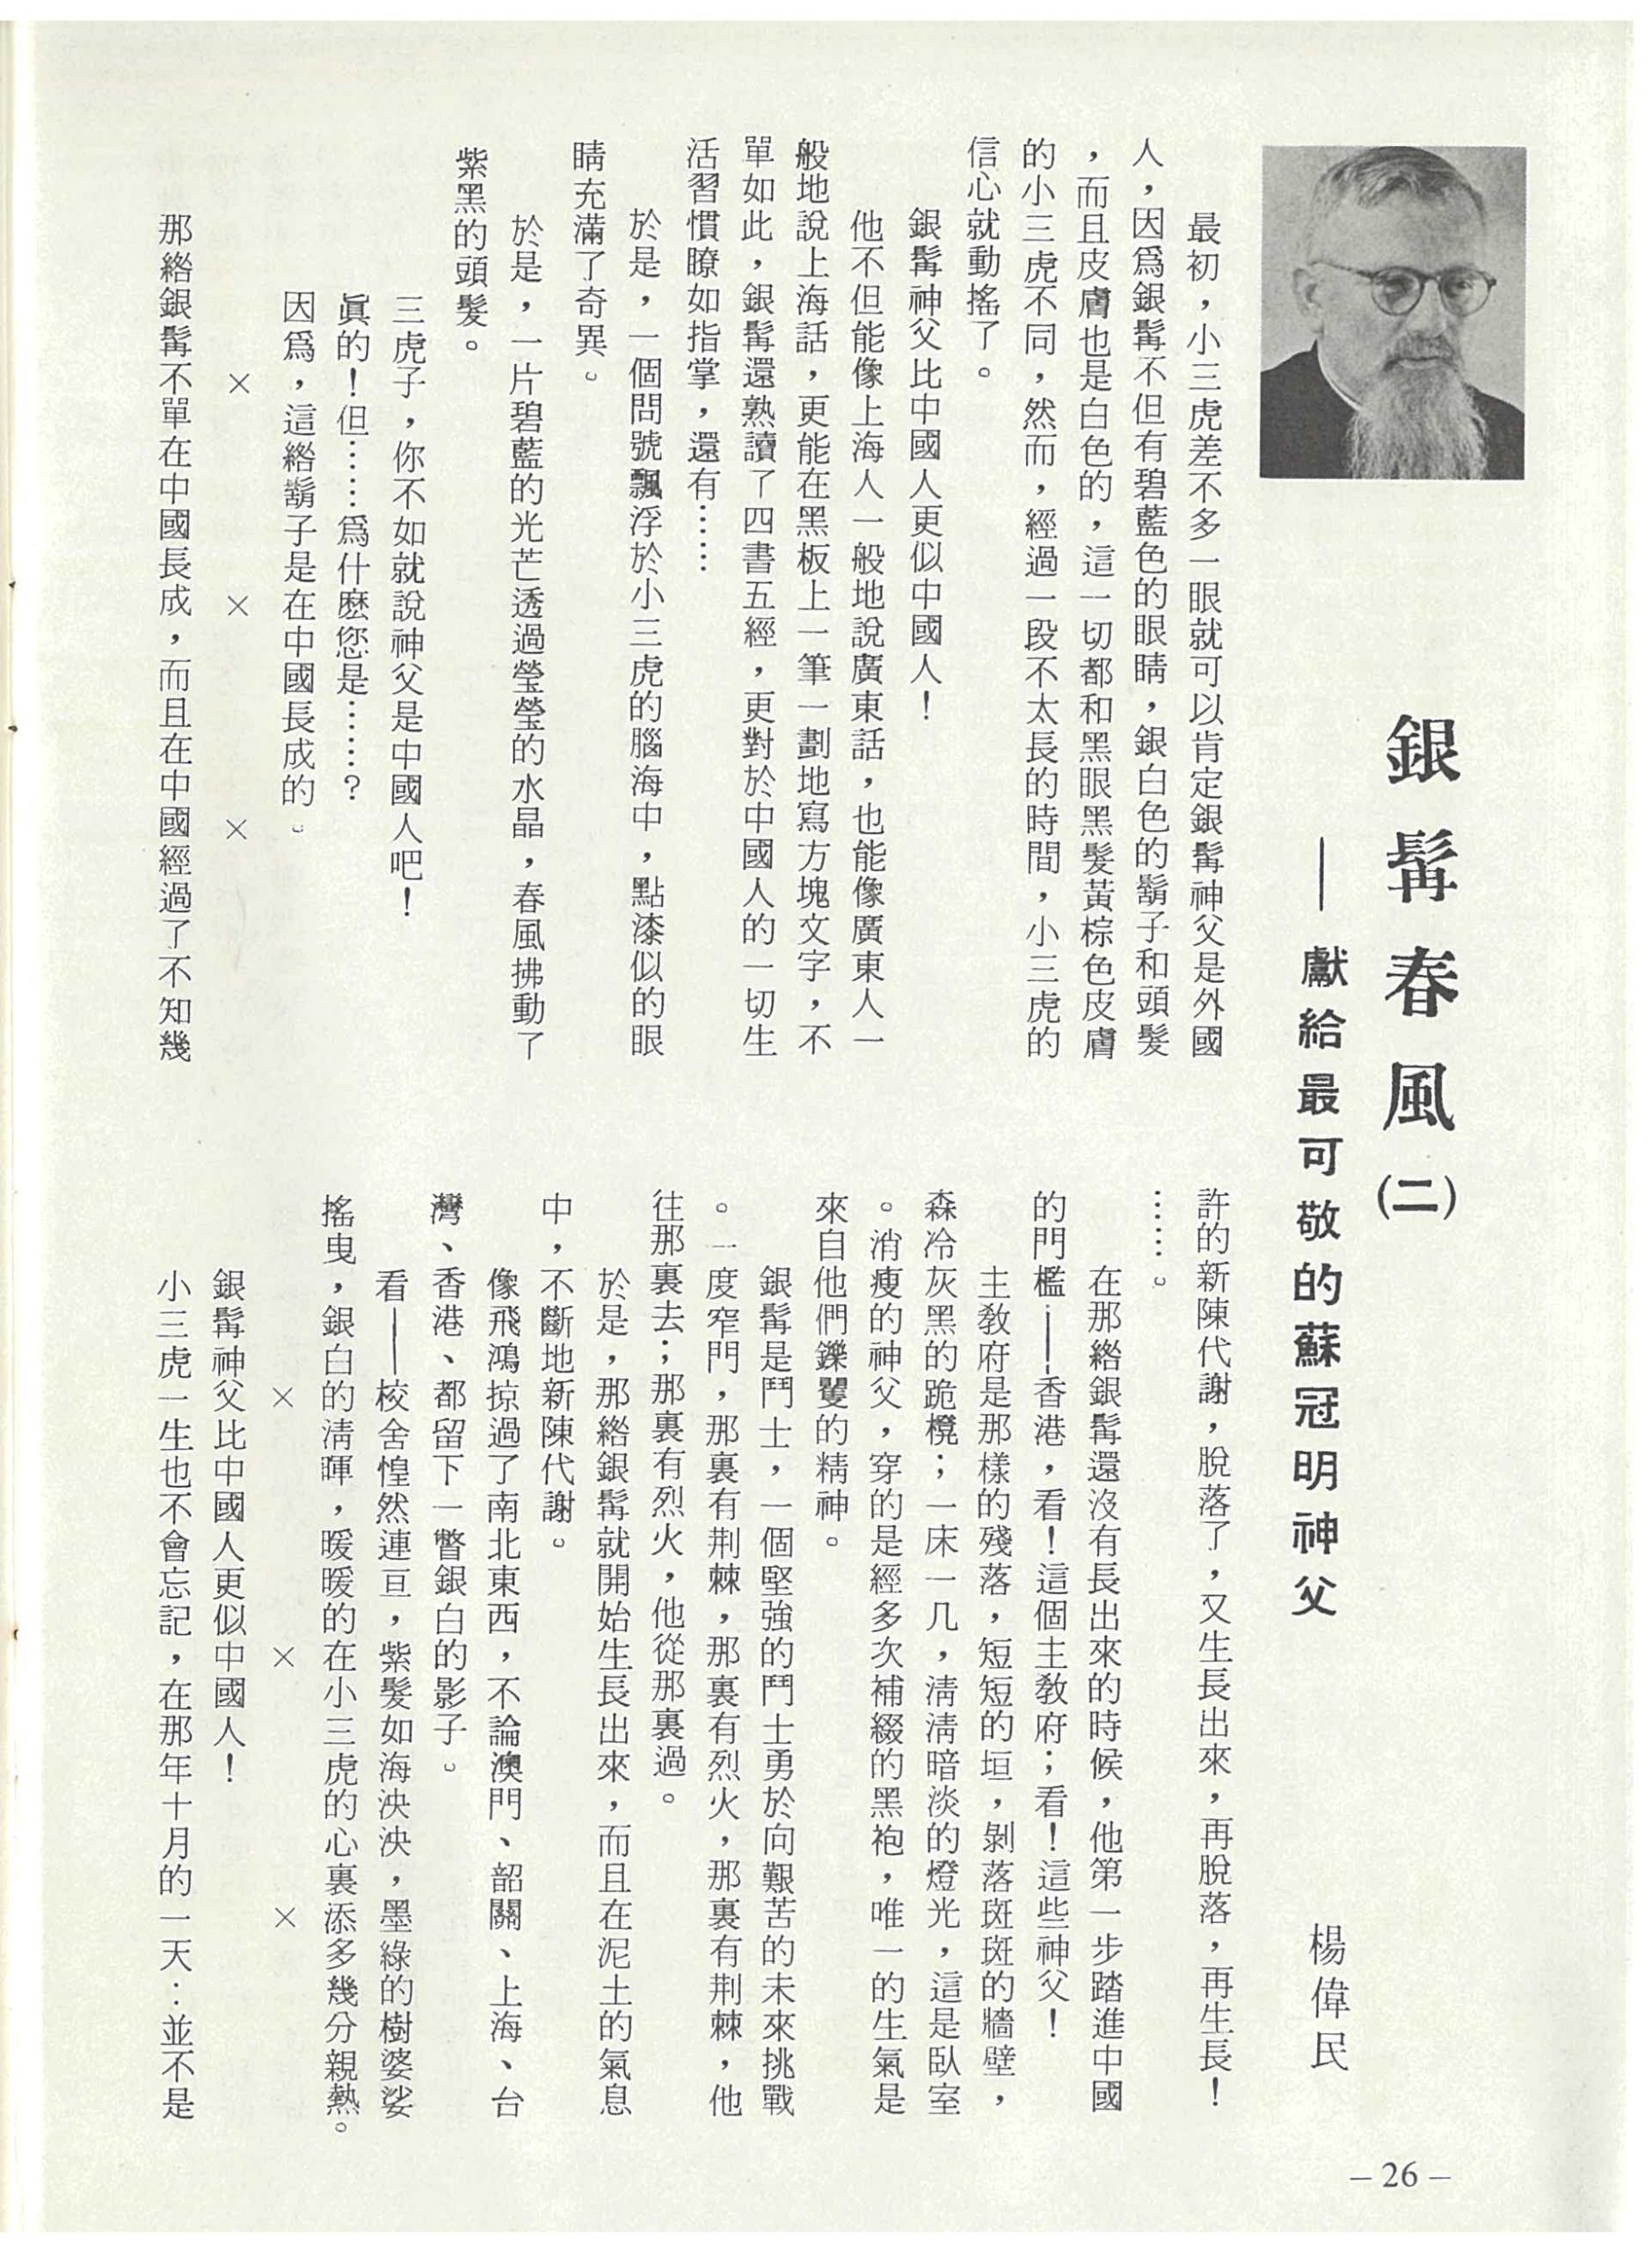 銀髯春風㈡
——獻給最可敬的蘇冠明神父
楊偉民
最初，小三虎差不多一眼就可以肯定銀髯神父是外國
人，因爲銀髯不但有碧藍色的眼睛，銀白色的鬍子和頭髮
，而且皮膚也是白色的，這一切都和黑眼黑髮黃棕色皮膚
的小三虎不同，然而，經過一段不太長的時間，小三虎的
信心就動搖了。
銀髯神父比中國人更似中國人！
他不但能像上海人一般地說廣東話，也能像廣東人一
般地說上海話，更能在黑板上一筆一劃地寫方塊文字，不
單如此，銀髯還熟讀了四書五經，更對於中國人的一切生
活習慣瞭如指掌，還有……
於是，一個問號飄浮於小三虎的腦海中，點漆似的眼
睛充滿了奇異。
於是，一片碧藍的光芒透過瑩瑩的水晶，春風拂動了
紫黑的頭髮。
三虎子，你不如就說神父是中國人吧！
眞的！但……爲什麽您是……？
因爲，這綹鬍子是在中國長成的。
×　×　×
那綹銀髯不單在中國長成，而且在中國經過了不知幾
許的新陳代謝，脫落了，又生長出來，再脫落，再生長！
……。
在那綹銀髯還沒有長出來的時候，他第一步踏進中國
的門檻——香港，看！這個主教府；看！這些神父！
主教府是那樣的殘落，短短的垣，剝落斑斑的牆壁，
森冷灰黑的跪櫈；一床一几，淸淸暗淡的燈光，這是臥室
。消瘦的神父，穿的是經多次補綴的黑袍，唯一的生氣是
來自他們鑠矍的精神。
銀髯是鬥士，一個堅強的鬥士勇於向艱苦的未來挑戰
。一度窄門，那裏有荆棘，那裏有烈火，那裏有荆棘，他
往那裏去；那裏有烈火，他從那裏過。
於是，那綹銀髯就開始生長出來，而且在泥土的氣息
中，不斷地新陳代謝。
像飛鴻掠過了南北東西，不論澳門、韶關、上海、台
灣、香港、都留下一瞥銀白的影子。
看——校舍惶然連亘，紫髮如海泱泱，墨綠的樹婆娑
搖曳，銀白的淸暉，暖暖的在小三虎的心裏添多幾分親熱。
×　×　×
銀髯神父比中國人更似中國人！
小三虎一生也不會忘記，在那年十月的一天：並不是
－26－